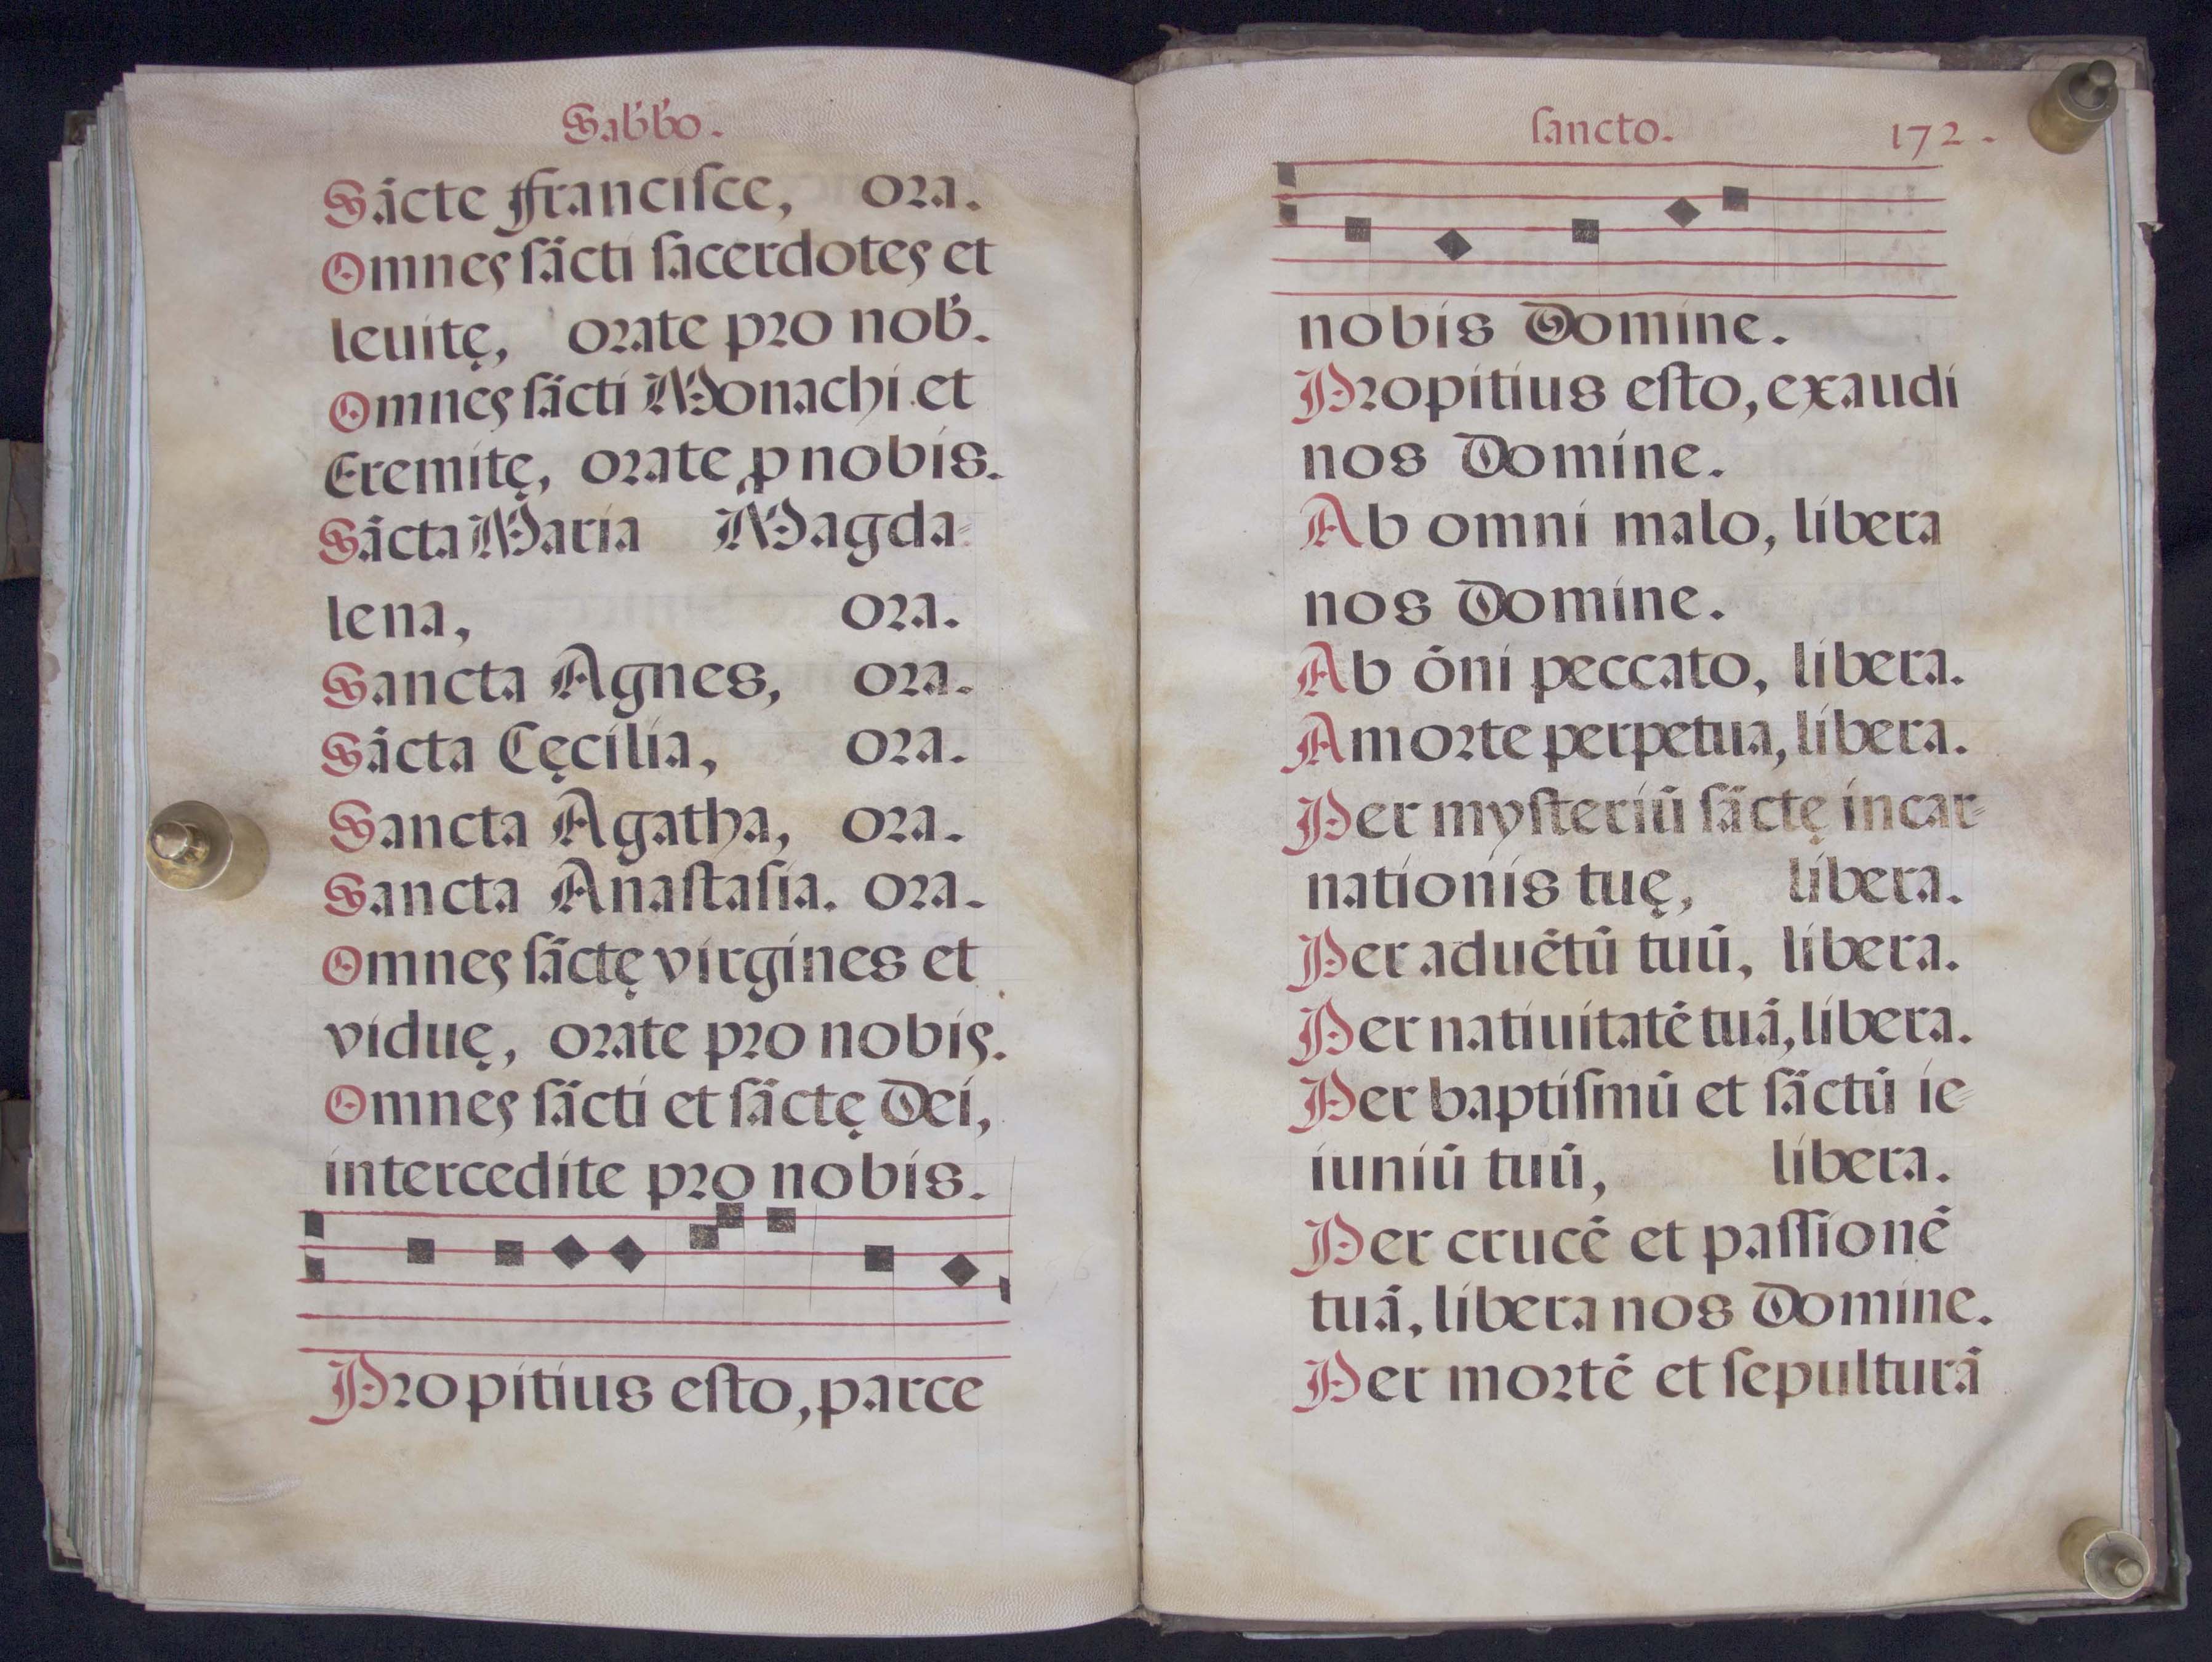 Sab̄b̄o.
Sācte Franciſce, ora.
Omnes ſācti ſacerdotes et
leuitę, orate pro nob̄.
Omnes ſācti Monachi et
Eremitę, orate ꝓ nobis.
Sācta Maria Magda-
lena, ora.
Sancta Agnes, ora.
Sācta Cęcilia, ora.
Sancta Agatha, ora.
Sancta Anaſtaſia. ora.
Omnes ſāctę virgines et
viduę, orate pro nobis.
Omnes ſācti et ſāctę Dei,
intercedite pro nobis.
Propitius eſto, parce
ſancto. 172.
nobis Domine.
Propitius eſto, exaudi
nos Domine.
Ab omni malo, libera
nos Domine.
Ab ōni peccato, libera.
A morte perpetua, libera.
Per myſteriū ſāctę incar-
nationis tuę, libera.
Per aduētū tuū, libera.
Per natiuitatē tuā, libera.
Per baptiſmū et ſāctū ie-
iuniū tuū, libera.
Per crucē et paſſionē
tuā, libera nos Domine.
Per mortē et ſepulturā